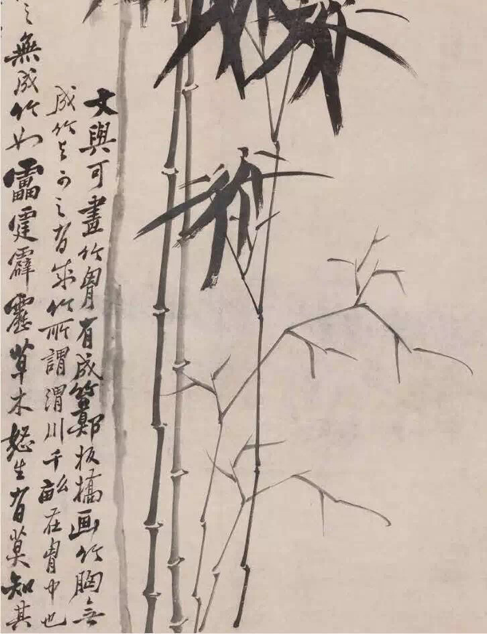 文與可畫竹胷有成竹鄭板橋画竹胸無
成竹与可之有成竹所謂渭川千畝在胷中也
之無成竹如雷霆霹靂草木怒生有莫知其